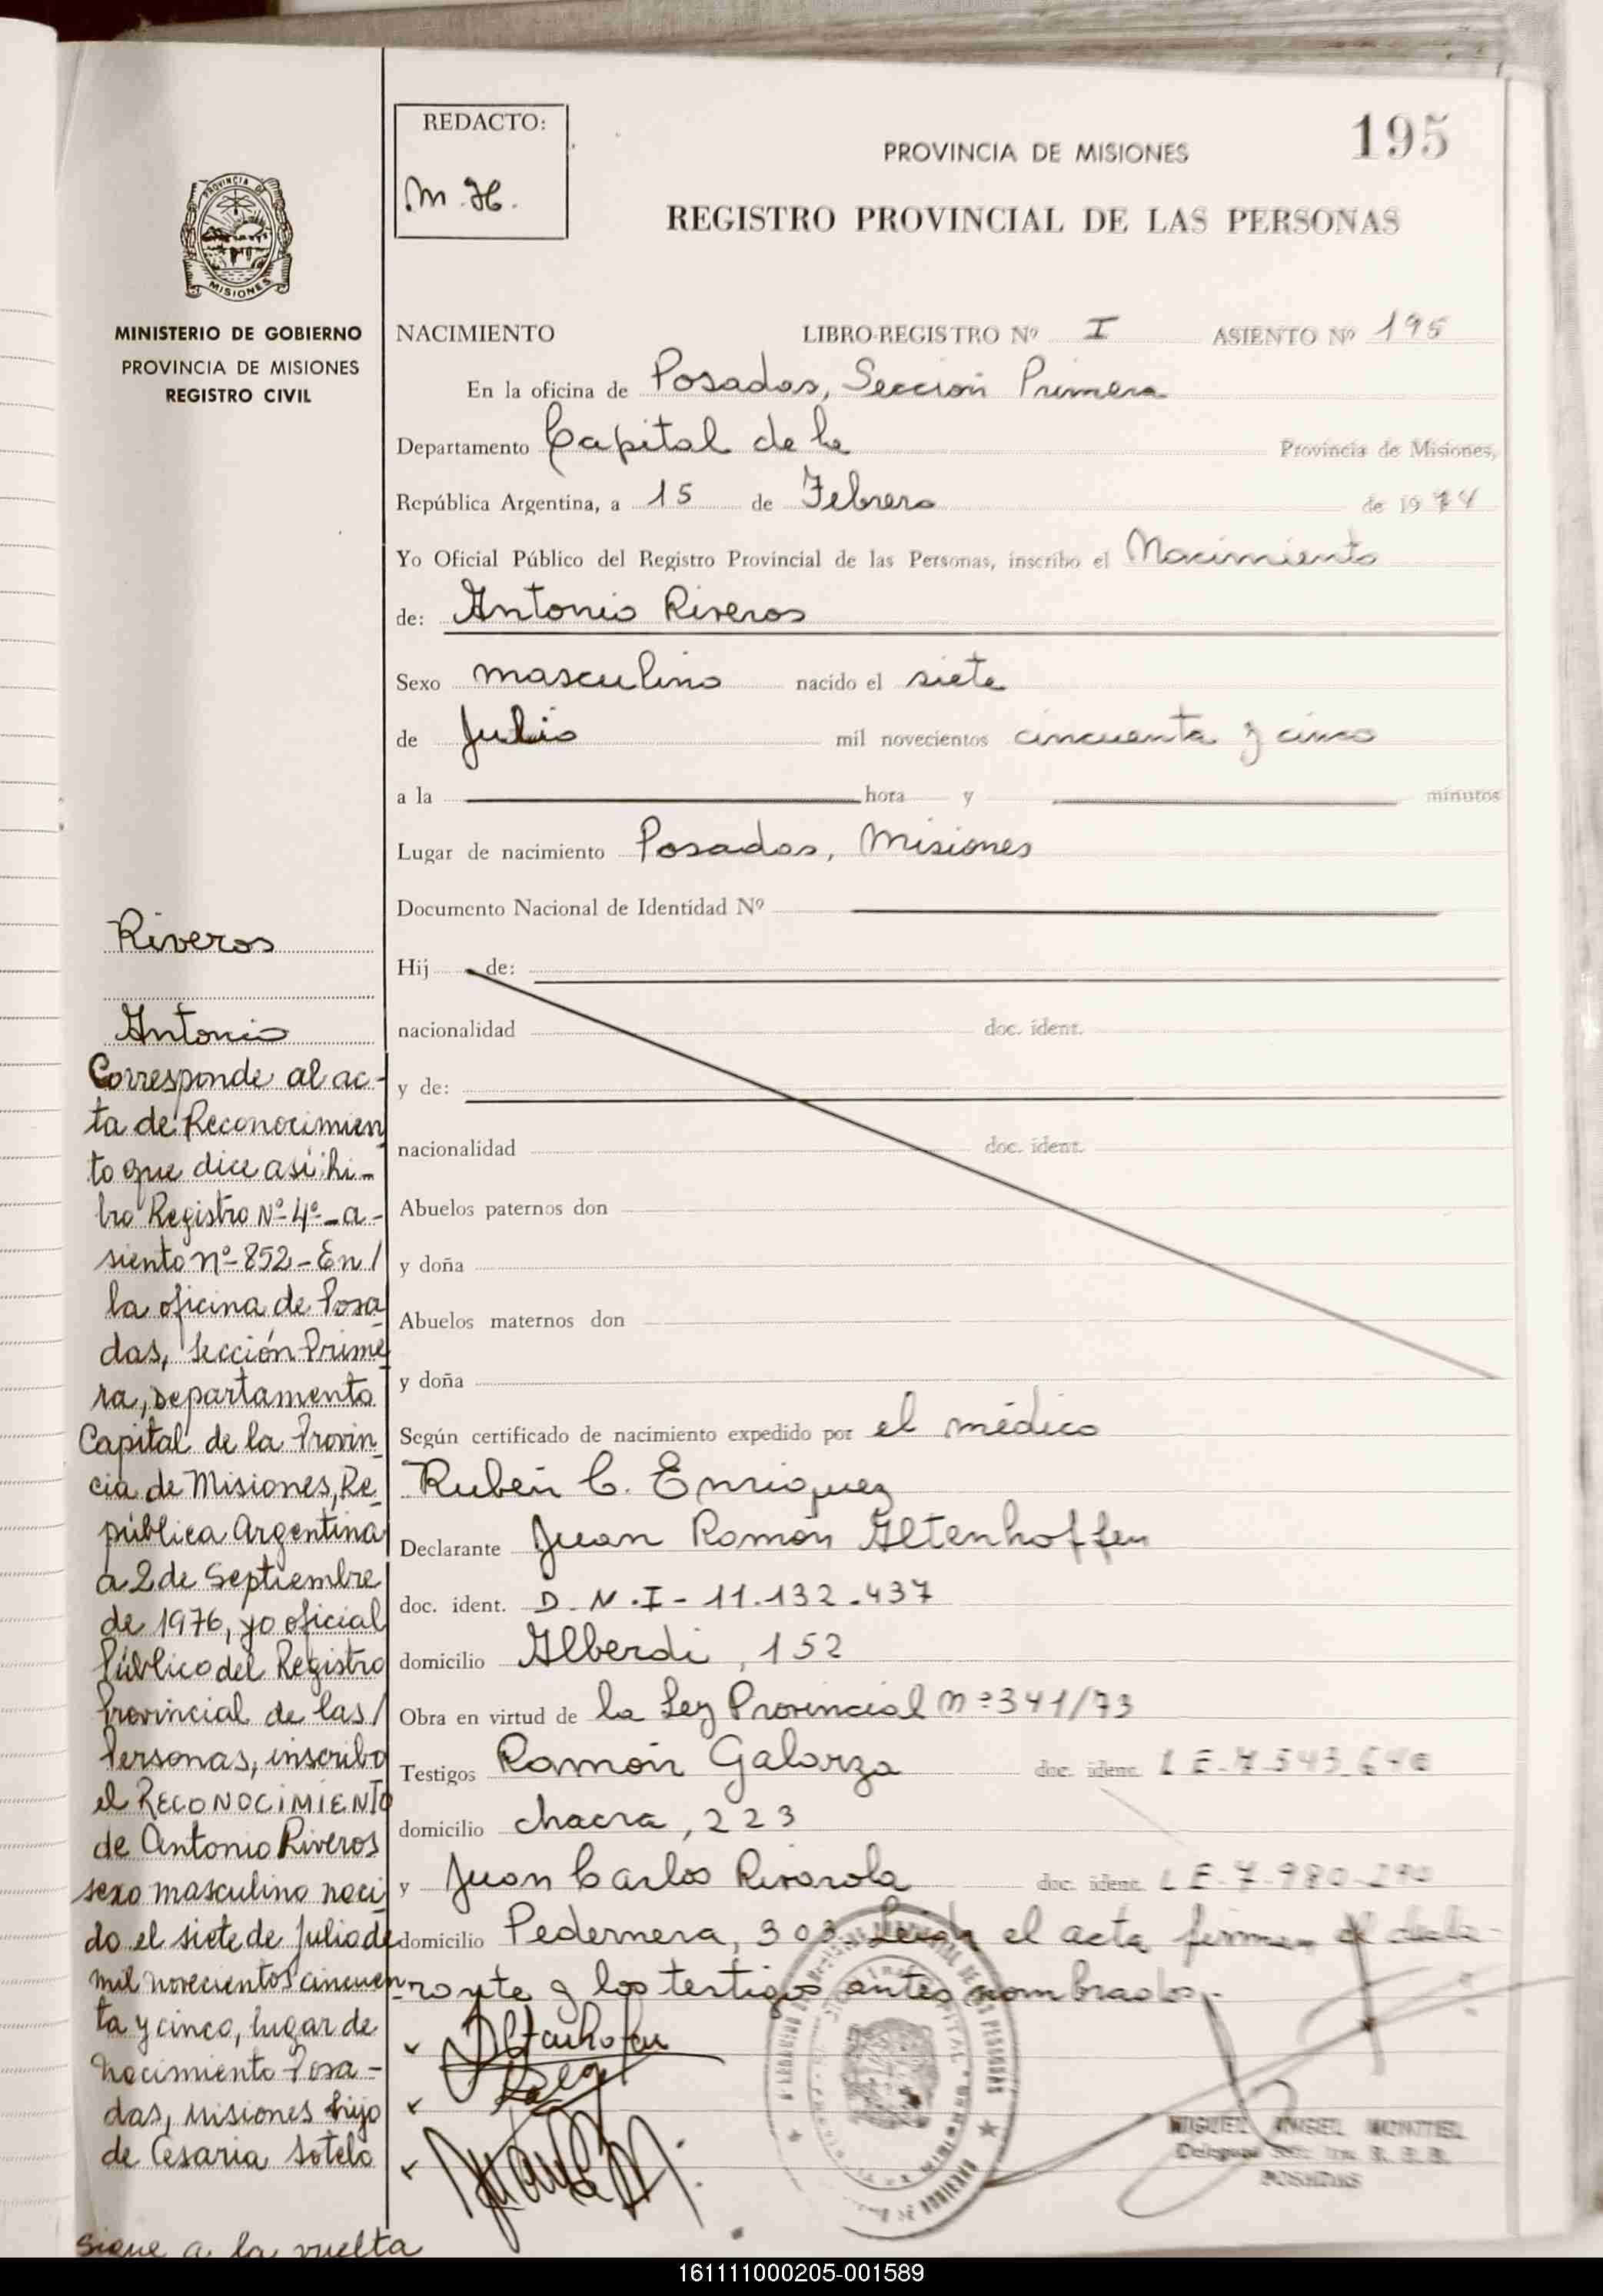 REDACTO:
M.H.
PROVINCIA DE MISIONES
195
REGISTRO PROVINCIAL DE LAS PERSONAS
PROVINCIA DE
MISIONES
MINISTERIO DE GOBIERNO
PROVINCIA DE MISIONES
REGISTRO CIVIL
NACIMIENTO LIBRO-REGISTRO Nº I ASIENTO Nº 195
En la oficina de Posadas, Sección Primera
Departamento Capital de la Provincia de Misiones,
República Argentina, a 15 de Febrero de 1974
Yo Oficial Público del Registro Provincial de las Personas, inscribo el Nacimiento
de: Antonio Riveros
Sexo masculino nacido el siete
de Julio mil novecientos cincuenta y cinco
a la hora y minutos
Lugar de nacimiento Posadas, Misiones
Documento Nacional de Identidad Nº
Hij de:
nacionalidad doc. ident.
y de:
nacionalidad doc. ident.
Abuelos paternos don
y doña
Abuelos maternos don
y doña
Según certificado de nacimiento expedido por el médico
Rubén C. Enriquez
Declarante Juan Ramón Altenhoffen
doc. ident. D.N.I- 11.132.437
domicilio Alberdi, 152
Obra en virtud de la Ley Provincial nº 341/73
Testigos Ramón Galarza doc. ident. L E-7.543.640
domicilio chacra, 223
y Juan Carlos Rivarola doc. ident. L E-7.980-290
domicilio Pedernera, 303 Leida el acta firman el decla-
rante y los testigos antes nombrados.-
MIGUEL ANGEL MONTIEL
POSADAS
Riveros
Antonio
Corresponde al ac-
ta de Reconocimien
to que dice así: Li-
bro Registro Nº 4º - a-
siento nº 852 - En /
la oficina de Posa
das, Sección Prime
ra, Departamento
Capital de la Provin
cia de Misiones, Re
pública Argentina
a 2 de Septiembre
de 1976, yo oficial
Público del Registro
Provincial de las /
Personas, inscribo
el RECONOCIMIENTO
de Antonio Riveros
sexo masculino naci
do el siete de Julio de
mil novecientos cincuen
ta y cinco, lugar de
nacimiento Posa-
das, Misiones hijo
de Cesaria Sotelo
Sigue a la vuelta
161111000205-001589